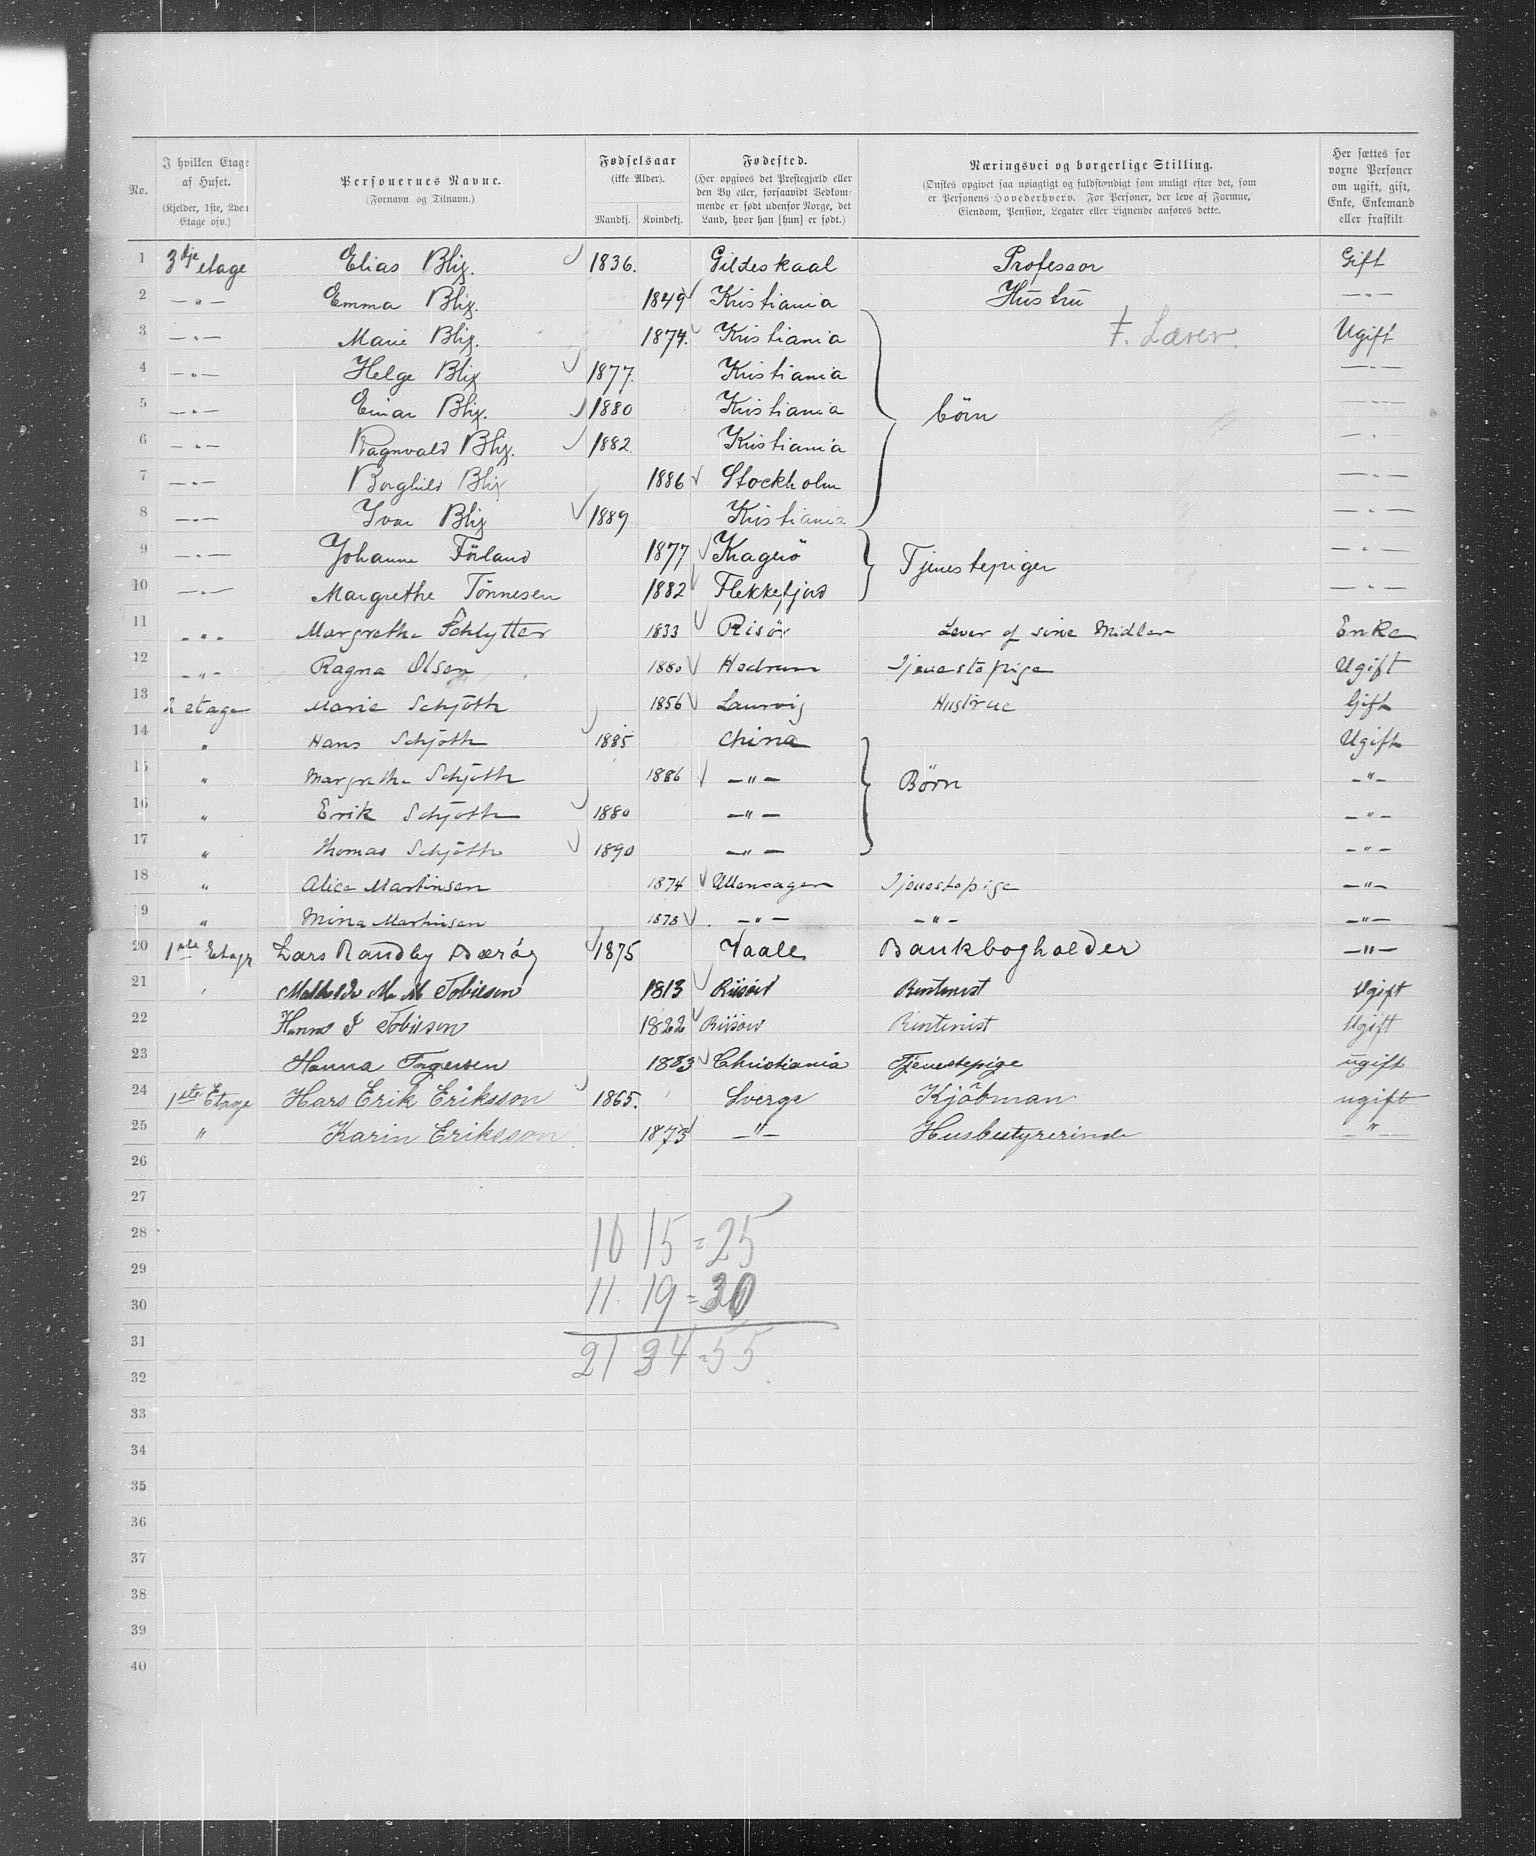 No. | I hvilken Etage af Huset. (Kjelder, 1ste, 2den Etage osv.) | Personernes Navne. (Fornavn og Tilnavn.) | Fødselsaar (ikke Alder). Mandkj. | Kvindekj. | Fødested. (Her opgives det Prestegjæld eller den By eller, forsaavidt Vedkommende er født udenfor Norge, det Land, hvor han [hun] er født.) | Næringsvei og borgerlige Stilling. (Ønskes opgivet saa nøiagtigt og fuldstændigt som muligt efter det, som er Personens Hovederhverv. For Personer, der leve af Formue, Eiendom, Pension, Legater eller Lignende anføres dette. | Her sættes for voxne Personer om ugift, gift, Enke, Enkemand eller fraskilt
1 3dje etage Elias Blix. 1836. Gildeskaal Professor Gift
2 —"— Emma Blix. 1849 Kristiania Hustru —"—
3 —"— Marie Blix. 1874. Kristiania F. Lærer. Ugift
4 —"— Helge Blix 1877. Kristiania —"—
5 —"— Einar Blix. 1880 Kristiania börn —"—
6 —"— Ragnvald Blix. 1882. Kristiania —"—
7 —"— Borghild Blix 1886 Stockholm —"—
8 —"— Ivar Blix 1889 Kristiania —"—
9 —"— Johanne Förland 1877 Kragerö Tjenestepiger —"—
10 —"— Margrethe Tönnesen 1882 Flekkefjord —"—
11 „ " „ Margrethe Schlytter 1833 Risör Lever af sine Midler Enke
12 „ " „ Ragna Olsen 1880 Hedrum Tjenestepige Ugift
13 2 etage Marie Schjöth 1856 Laurvig Hustrue Gift
14 " Hans Schjöth 1885 China Ugift
15 " Margrethe Schjöth 1886 —"— Börn —"—
16 " Erik Schjöth 1880 —"— —"—
17 " Thomas Schjöth 1890 —"— —"—
18 " Alice Martinsen 1874 Ullensager Tjenestepige —"—
19 " Mina Martinsen 1878 —"— —"— —"—
20 1ste Etage Lars Randby Bærög 1875 Vaale Bankbogholder —"—
21 Mathilde M. M. Tobiesen 1813 Risöer Rentenist Ugift
22 Hanna J Tobiesen 1822 Risöer Rentenist Ugift
23 Hanna Ingersen 1883 Christiania Tjenestepige ugift
24 1ste Etage Hans Erik Eriksson 1865. Sverge Kjöbman ugift
25 " Karin Eriksson 1873 —"— Husbestyrerinde —"—
26
27
28 10 15 = 25
29
30 11 19 = 30
31
32 21 34 = 55
33
34
35
36
37
38
39
40